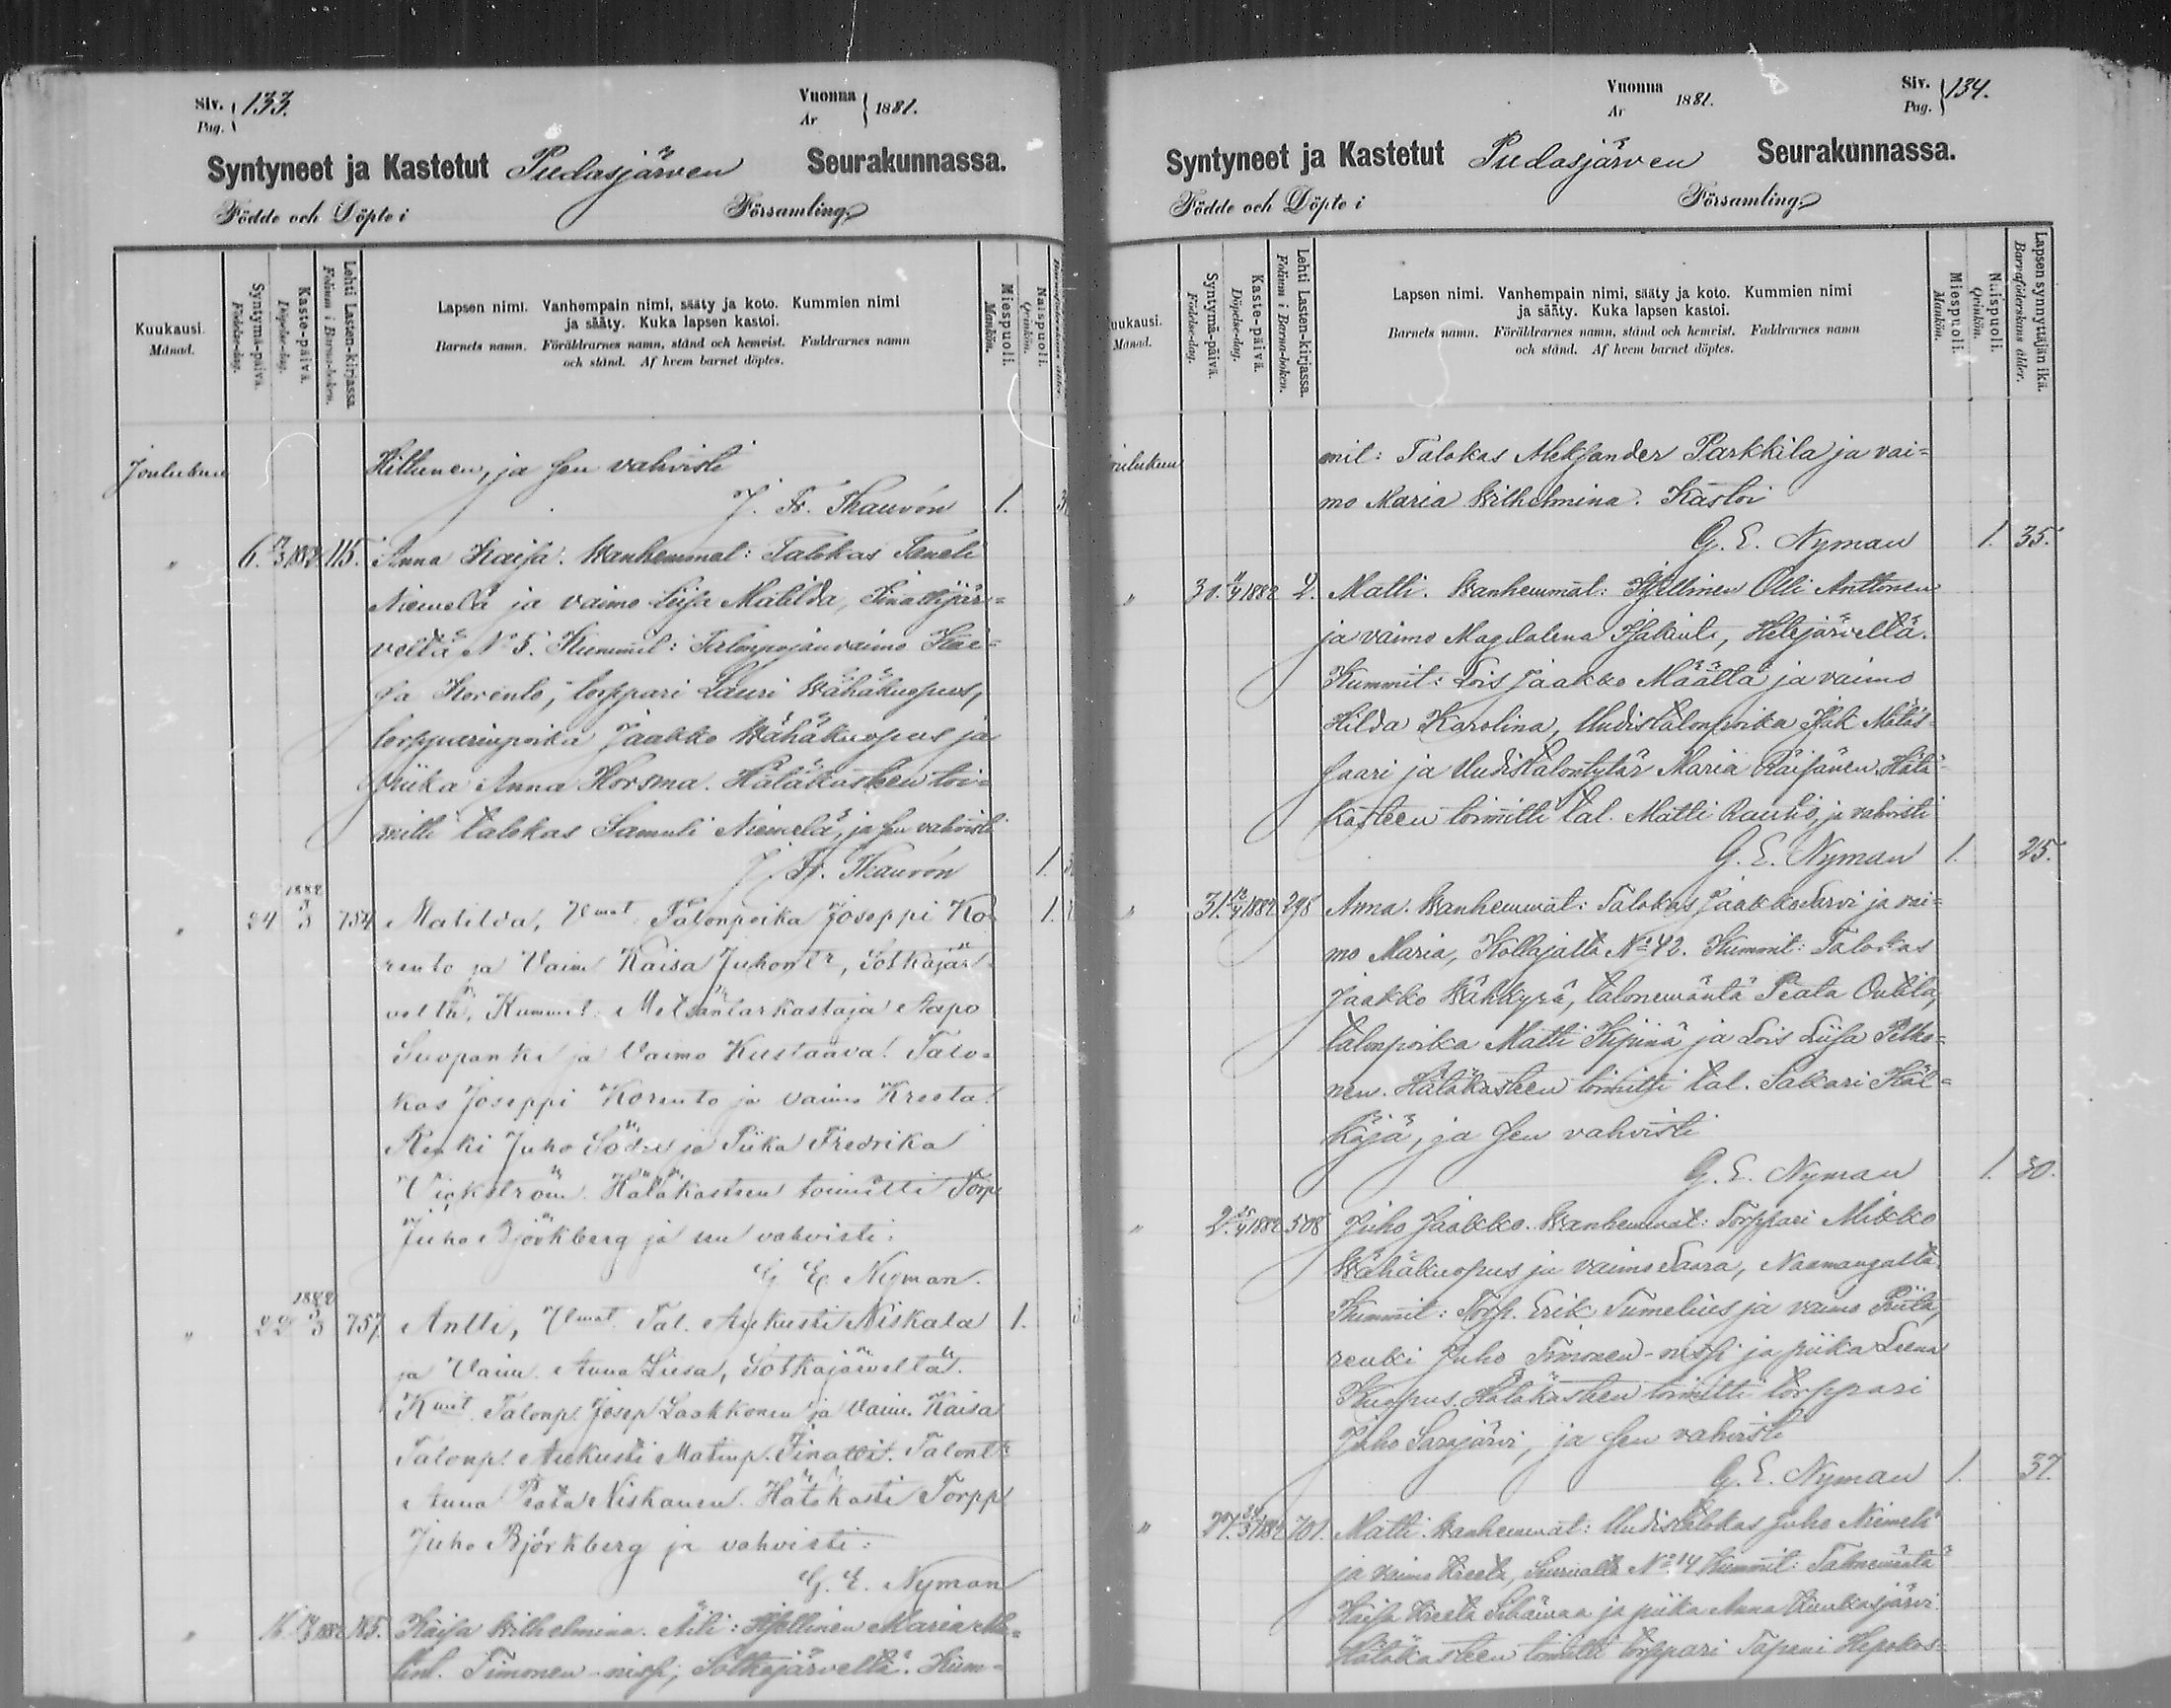 Siv. 133.
Pag.
Vuonna 1881.
Ar
Syntyneet ja Kastetut Pudasjärven Seurakunnassa.
Födde och Döpte i Församling
Kuukausi.
Månad.
Syntymä-päivä.
Födelse-dag.
Kaste-päivä.
Döpelse-dag.
Lehti Lasten-kirjassa.
Folium i Barna-boken.
Lapsen nimi. Vanhempain nimi, sääty ja koto. Kummien nimi
ja sääty. Kuka lapsen kastoi.
Barnets namn. Föräldrarnes namn, stånd och hemvist. Faddrarnes namn
och stånd. Af hvem barnet döptes.
Miespuoli.
Mankön.
Naispuoli.
Qvinkön.
Joulukuu Hiltunen, ja sen vahvisti
J. Fr. Thauvón 1.
" 6. 115. Anna Kaisa. Wanhemmat: Talokas Taneli
Niemelä ja vaimo Liisa Matilda, Iinattijär=
veltä No 5. Kummit: Talonpojanvaimo Kai=
sa Korento, torppari Lauri Wähäkuopus,
torpparinpoika Jaakko Wähäkuopus ja
piika Anna Horsma. Hätäkasteen toi=
mitti talokas Samuli Niemelä, ja sen vahvisti
J. Fr. Thauvón 1.
" 24 1882 3/3 754 Matilda, Vmat Talonpoika Joseppi Ko= 1.
rento ja Vaim Kaisa Juhontr, Sotkajär
veltä, Kummit Metsäntarkastaja Aapo
Suopanki ja Vaimo Kustaava! Talo=
kas Joseppi Korento ja vaimo Kreeta!
Renki Juho Söder ja Piika Fredrika
Vickström. Hätäkasteen toimitti Torp
Juho Björkberg ja sen vahvisti:
G E. Nyman.
" 22 1882 3/3 757 Antti, Vmat Tal. Aukusti Niskala 1.
ja Vaim. Anna Liisa, Sotkajärveltä.
Kmit Talonp. Josep Laakkonen ja Vaim. Kaisa
Talonp. Aukusti Matinp. Iinatti. Talontr
Anna Beata Niskanen. Hätäkasti Torpp
Juho Björkberg ja vahvisti:
G. E. Nyman
" 16. 185. Kaisa Wilhelmina. Äiti: Itsellinen Maria Ma=
tint. Timonen-niss; Sotkajärveltä. Kum=
Vuonna 1881.
Ar
Siv. 134.
Pag.
Syntyneet ja Kastetut Pudasjärven Seurakunnassa.
Födde och Döpte i Församling
uukausi.
Månad.
Syntymä-päivä.
Födelse-dag.
Kaste-päivä.
Döpelse-dag.
Lehti Lasten-kirjassa.
Folium i Barna-boken.
Lapsen nimi. Vanhempain nimi, sääty ja koto. Kummien nimi
ja sääty. Kuka lapsen kastoi.
Barnets namn. Föräldrarnes namn, stånd och hemvist. Faddrarnes namn
och stånd. Af hvem barnet döptes.
Miespuoli.
Mankön.
Naispuoli.
Qvinkön.
Lapsen synnyttäjän ikä.
Barnaföderskans ålder.
oulukuu mit: Talokas Aleksander Parkkila ja vai=
mo Maria Wilhelmina. Kastoi
G. E. Nyman 1. 35.
" 30. 2. Matti. Wanhemmat: Itsellinen Olli Anttonen
ja vaimo Magdalena Isakint, Hetejärveltä.
Kummit: Lois Jaakko Määttä ja vaimo
Hilda Karolina, Uudistalonpoika Isak Mätäs=
saari ja Uudistalontytär Maria Räisänen. Hätä=
kasteen toimitti tal. Matti Rauhio, ja vahvisti
G. E. Nyman 1. 25.
" 31. 298 Anna. Wanhemmat: Talokas Jaakko Sarvi ja vai=
mo Maria, Kollajalta No 42. Kummit: Talokas
Jaakko Wähkyrä, talonemäntä Beata Outila,
talonpoika Matti Kipinä ja Lois Liisa Pelko=
nen. Hätäkasteen toimitti tal. Sakari Käl=
käjä, ja sen vahvisti
G. E. Nyman 1. 30.
" 2. 508 Juho Jaakko. Wanhemmat: Torppari Mikko
Wähäkuopus ja vaimo Saara, Naamangalta.
Kummit: Torp. Erik Tumelius ja vaimo Riita,
renki Juho Timonen-niss ja piika Leena
Kuopus. Hätäkasteen toimitti torppari
Juho Sarajärvi, ja sen vahvisti
G. E. Nyman 1. 37.
" 27. 701. Matti. Wanhemmat: Uudistalokas Juho Niemelä
ja vaimo Kreeta, No 14 Kummit: Talonemäntä
Kaisa Kreeta ja piika Anna
Hätäkasteen toimitti torppari Tapani Hepokos=